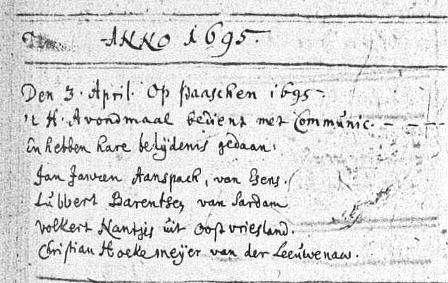 ANNO 1695.
Den 3. April. Op paaschen 1695.
't H. Avondmaal bedient met Communic. - - -
En hebben hare belijdenis gedaan:
Jan Jansen Aanspack, van Esens.
Lubbert Barentsen van Sardam
volkert Nantjes uit Oostvriesland.
Christian Hoekemeijer van der Leeuwenau.